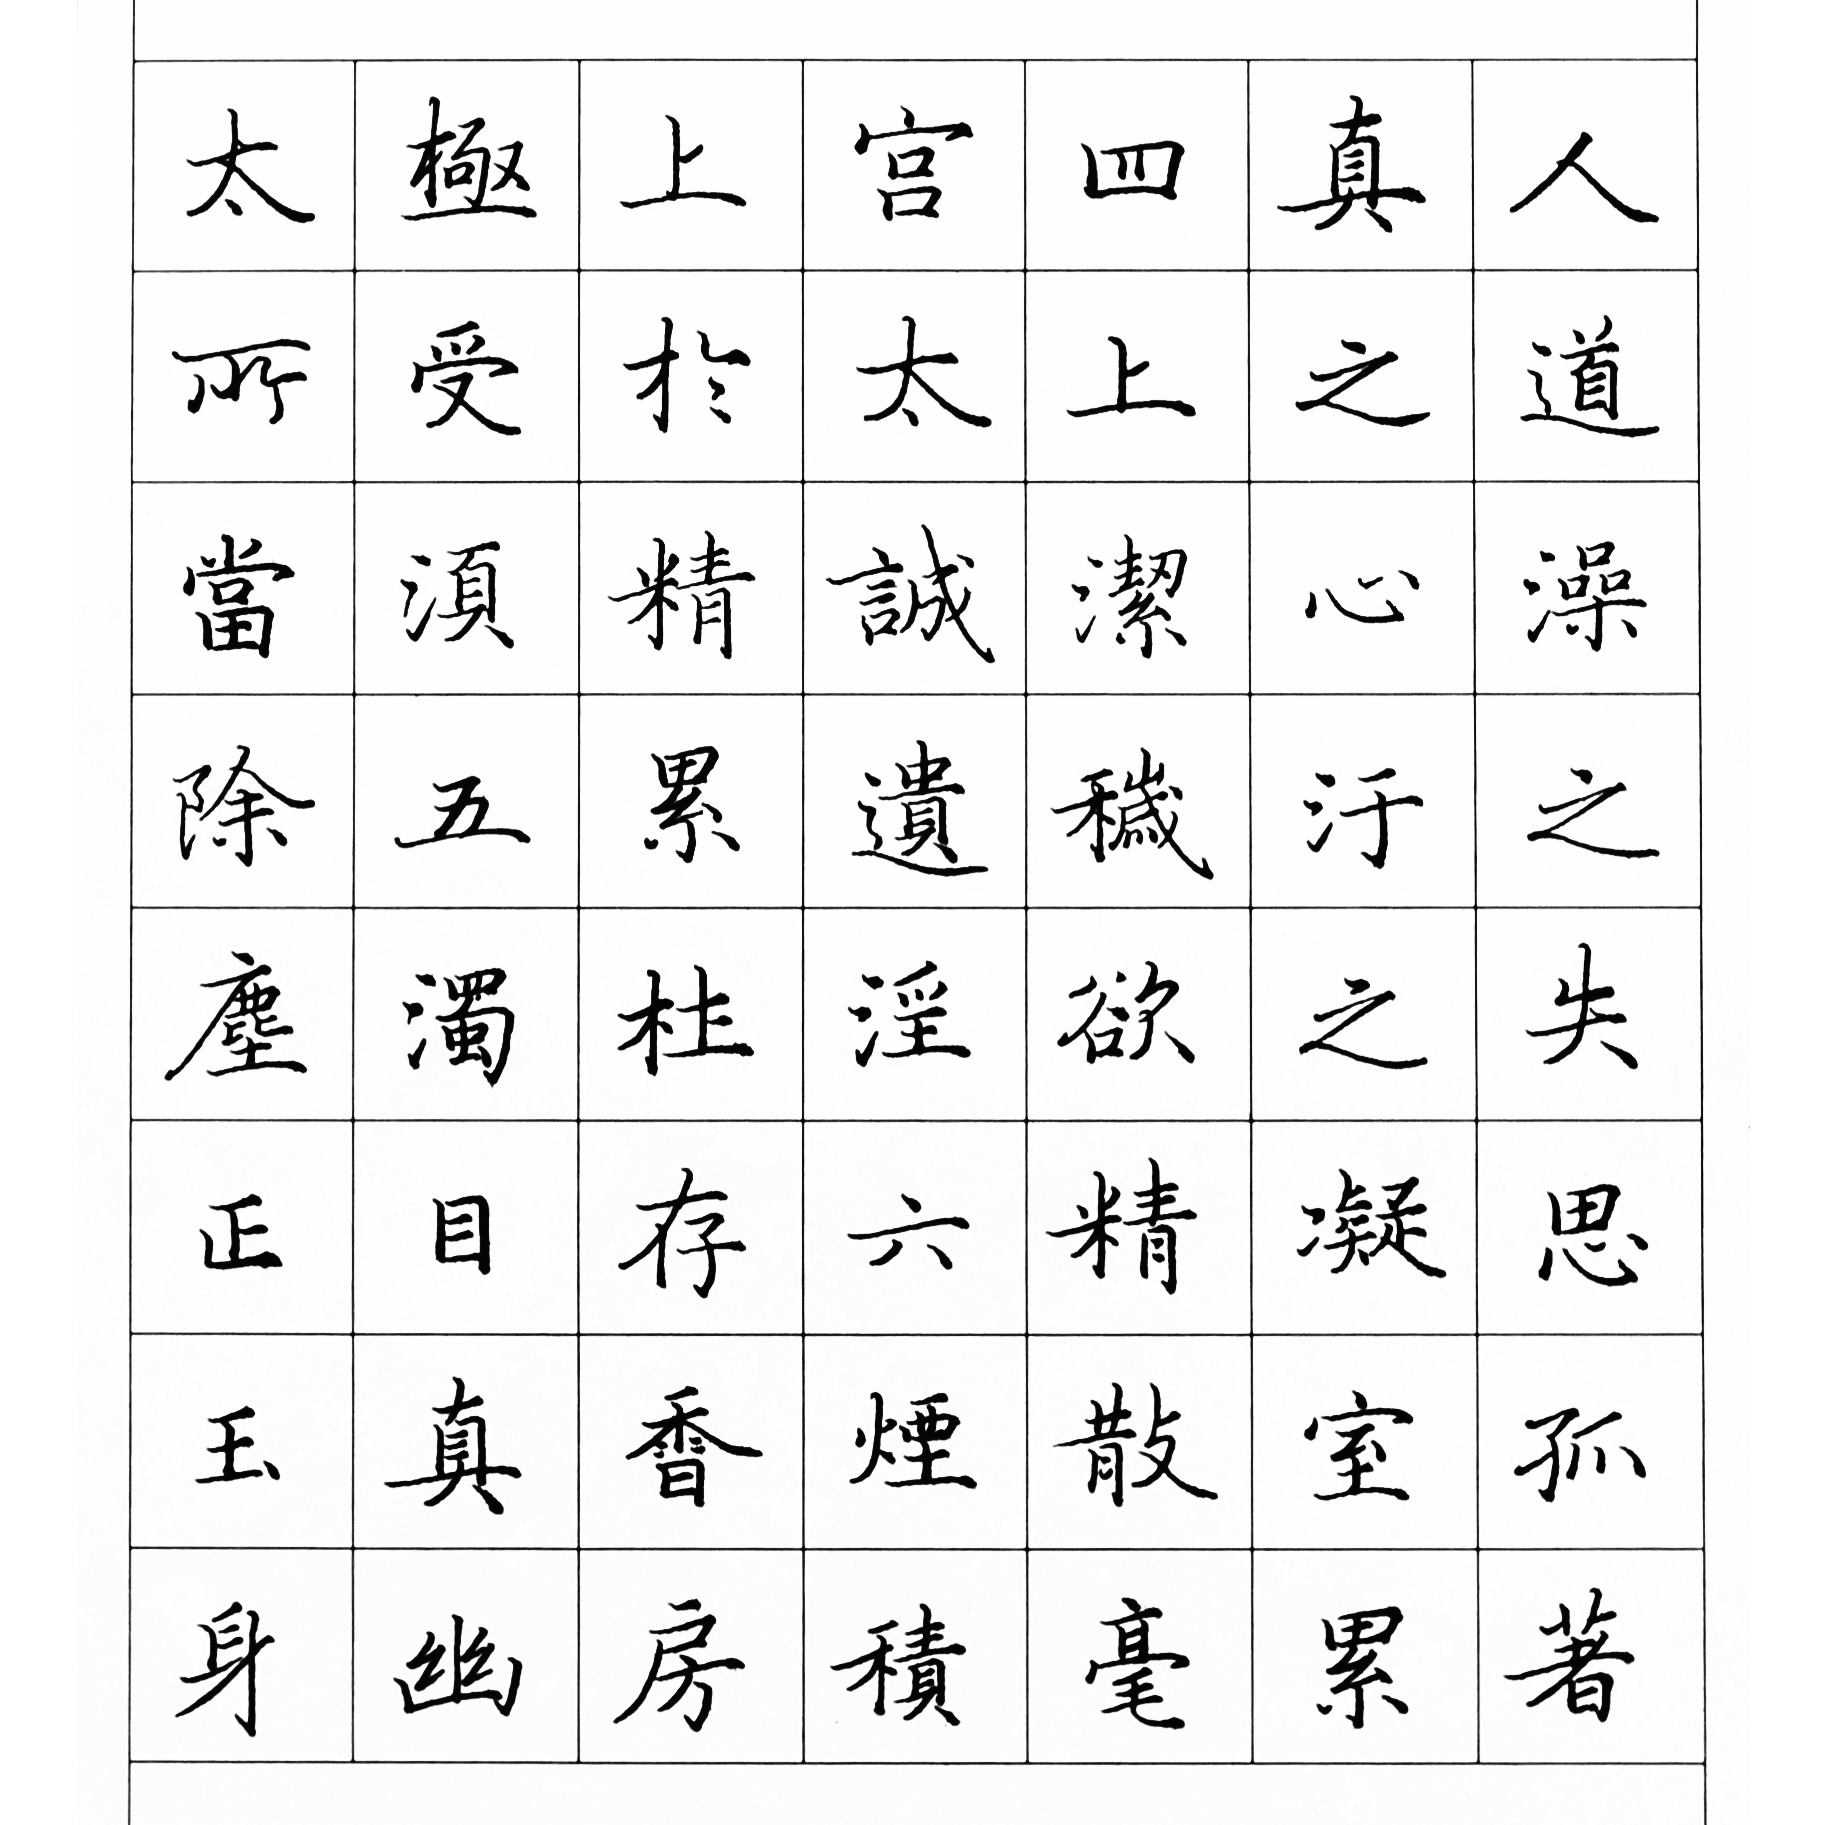 太極上宫四真人
所受於太上之道
當湏精誠潔心澡
除五累遺穢汙之
塵濁杜淫欲之失
正目存六精凝思
玉真香煙散室孤
身幽房積毫累著